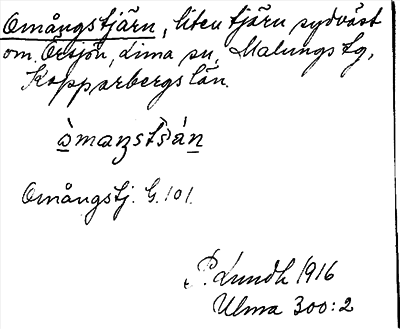 Omångstjärn, liten tjärn sydväst
om Örsjön, Lima sn, Malungs tg,
Kopparbergs län.
òmaŋstʃà́n
Omångstj. G. 101.
P. Lundh 1916
Ulma 300:2